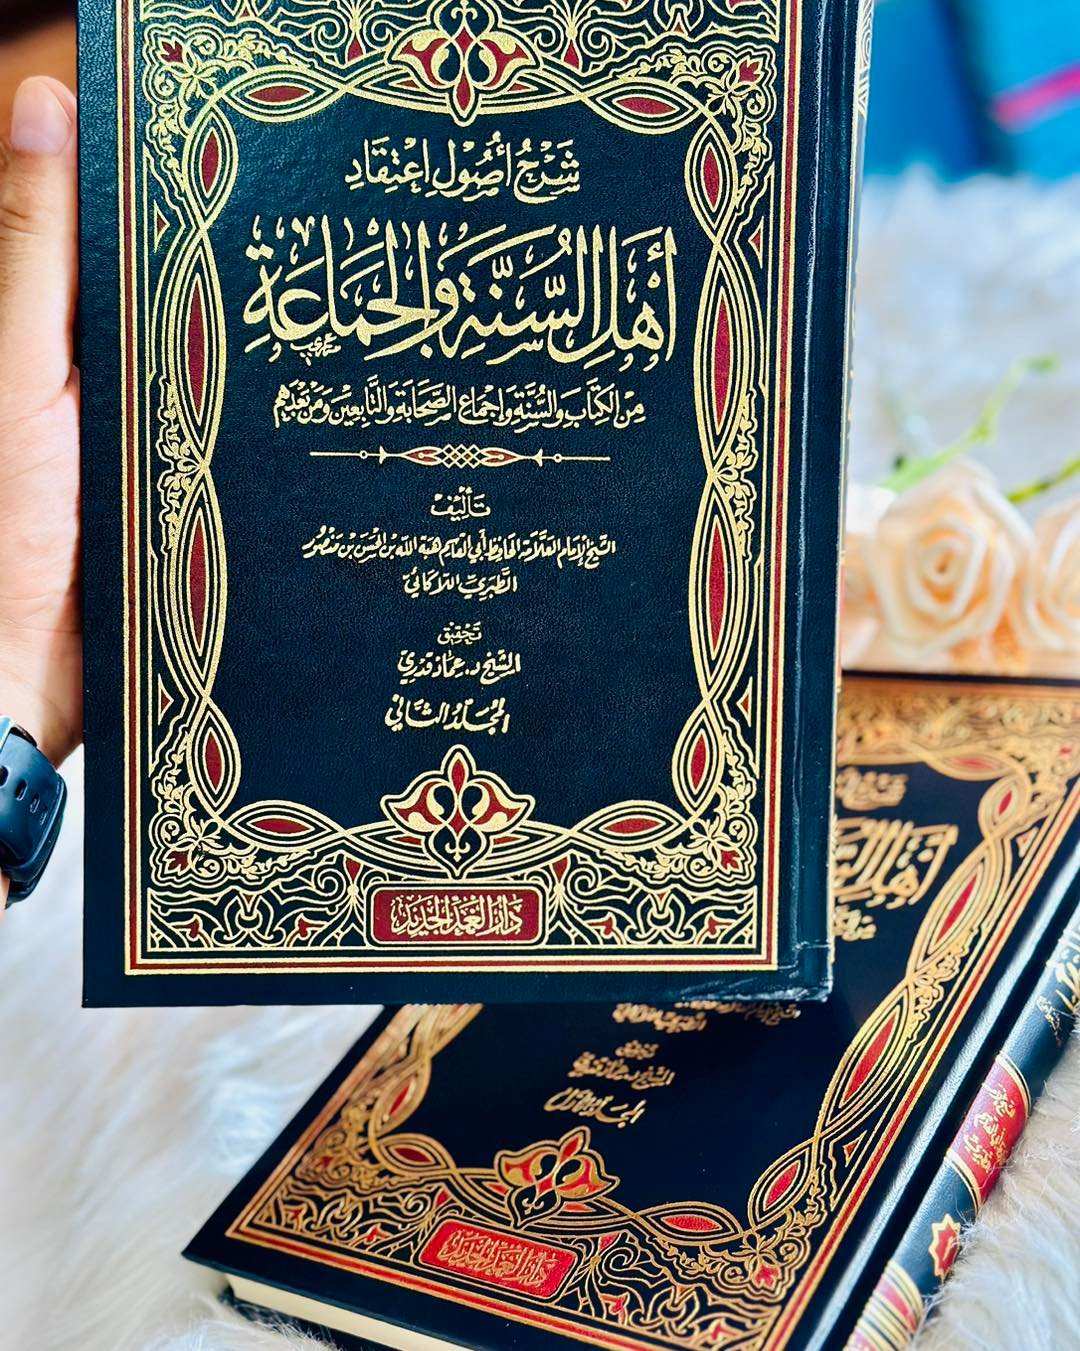 شَرْحُ أُصُولِ اعْتِقَادِ
أَهْلِ السُّنَّةِ وَالْجَمَاعَةِ
مِنَ الْكِتَابِ وَالسُّنَّةِ وَإِجْمَاعِ الصَّحَابَةِ وَالتَّابِعِينَ وَمَنْ بَعْدَهُمْ
تَأْلِيفُ
الشَّيْخِ الْإِمَامِ الْعَلَّامَةِ الْحَافِظِ أَبِي الْقَاسِمِ هِبَةِ اللَّهِ بْنِ الْحَسَنِ بْنِ مَنْصُورٍ
الطَّبَرِيِّ اللَّالَكَائِيِّ
تَحْقِيقُ
الشَّيْخِ د. عِمَادْ قَدْرِي
الْمُجَلَّدُ الثَّانِي
دَارُ الْغَدِ الْجَدِيدِ
أَهْلِ
الطَّبَرِيِّ اللَّالَكَائِيِّ
تَحْقِيقُ
الشَّيْخِ د. عِمَادْ قَدْرِي
دَارُ الْغَدِ الْجَدِيدِ